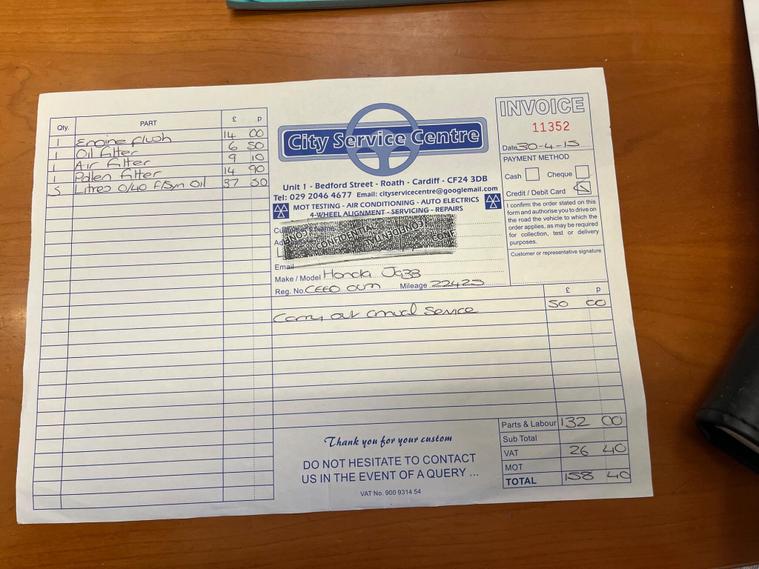 Qty. PART £ P
1 Engine flush 14 00
1 Oil filter 6 50
1 Air filter 9 10
1 Polen filter 14 90
5 Litres 0/40 F/Syn Oil 37 50
City Service Centre
Unit 1 - Bedford Street - Roath - Cardiff - CF24 3DB
Tel: 029 2046 4677 Email: cityservicecentre@googlemail.com
MOT TESTING - AIR CONDITIONING - AUTO ELECTRICS
4-WHEEL ALIGNMENT - SERVICING - REPAIRS
CONFIDENTIAL
Email
Make / Model Honda Jazz
Reg. No. Mileage 22425
INVOICE
11352
Date 30-4-15
PAYMENT METHOD
Cash Cheque
Credit / Debit Card
I confirm the order stated on this
form and authorise you to drive on
the road the vehicle to which the
order applies, as may be required
for collection, test or delivery
purposes.
Customer or representative signature
£ P
Carry out annual service 50 00
Thank you for your custom
DO NOT HESITATE TO CONTACT
US IN THE EVENT OF A QUERY ...
VAT No. 900 9314 54
Parts & Labour 132 00
Sub Total
VAT 26 40
MOT
TOTAL 158 40